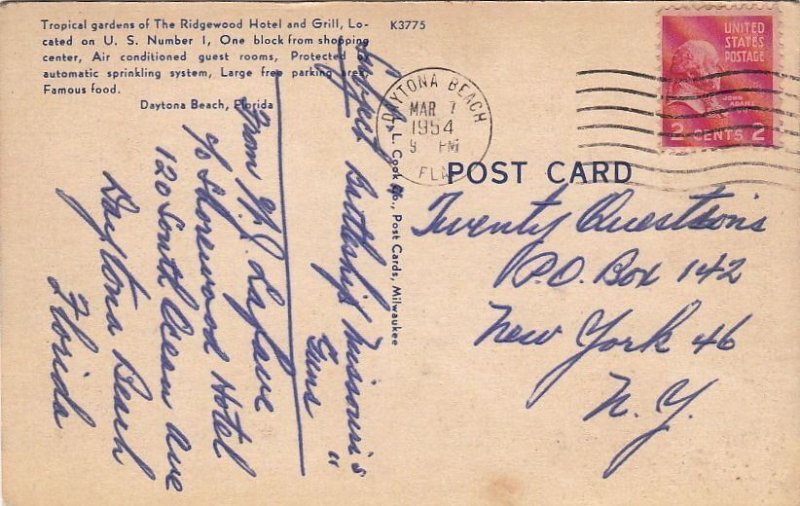 Tropical gardens of The Ridgewood Hotel and Grill, Lo-
cated on U. S. Number 1, One block from shopping
center, Air conditioned guest rooms, Protected
automatic sprinkling system, Large free parking area,
Famous food.
Daytona Beach, Florida
K3775
DAYTONA BEACH
MAR 7
1954
9 PM
FLA
UNITED
STATES
POSTAGE
JOHN
ADAMS
2 CENTS 2
POST CARD
L. Cook Co., Post Cards, Milwaukee
Subject Battleship Missouri's
Guns "
From
Lafave
c/o Shorewood Hotel
120 South Ocean Ave
Daytona Beach
Florida
Twenty Questions
P.O. Box 142
New York 46
N. Y.